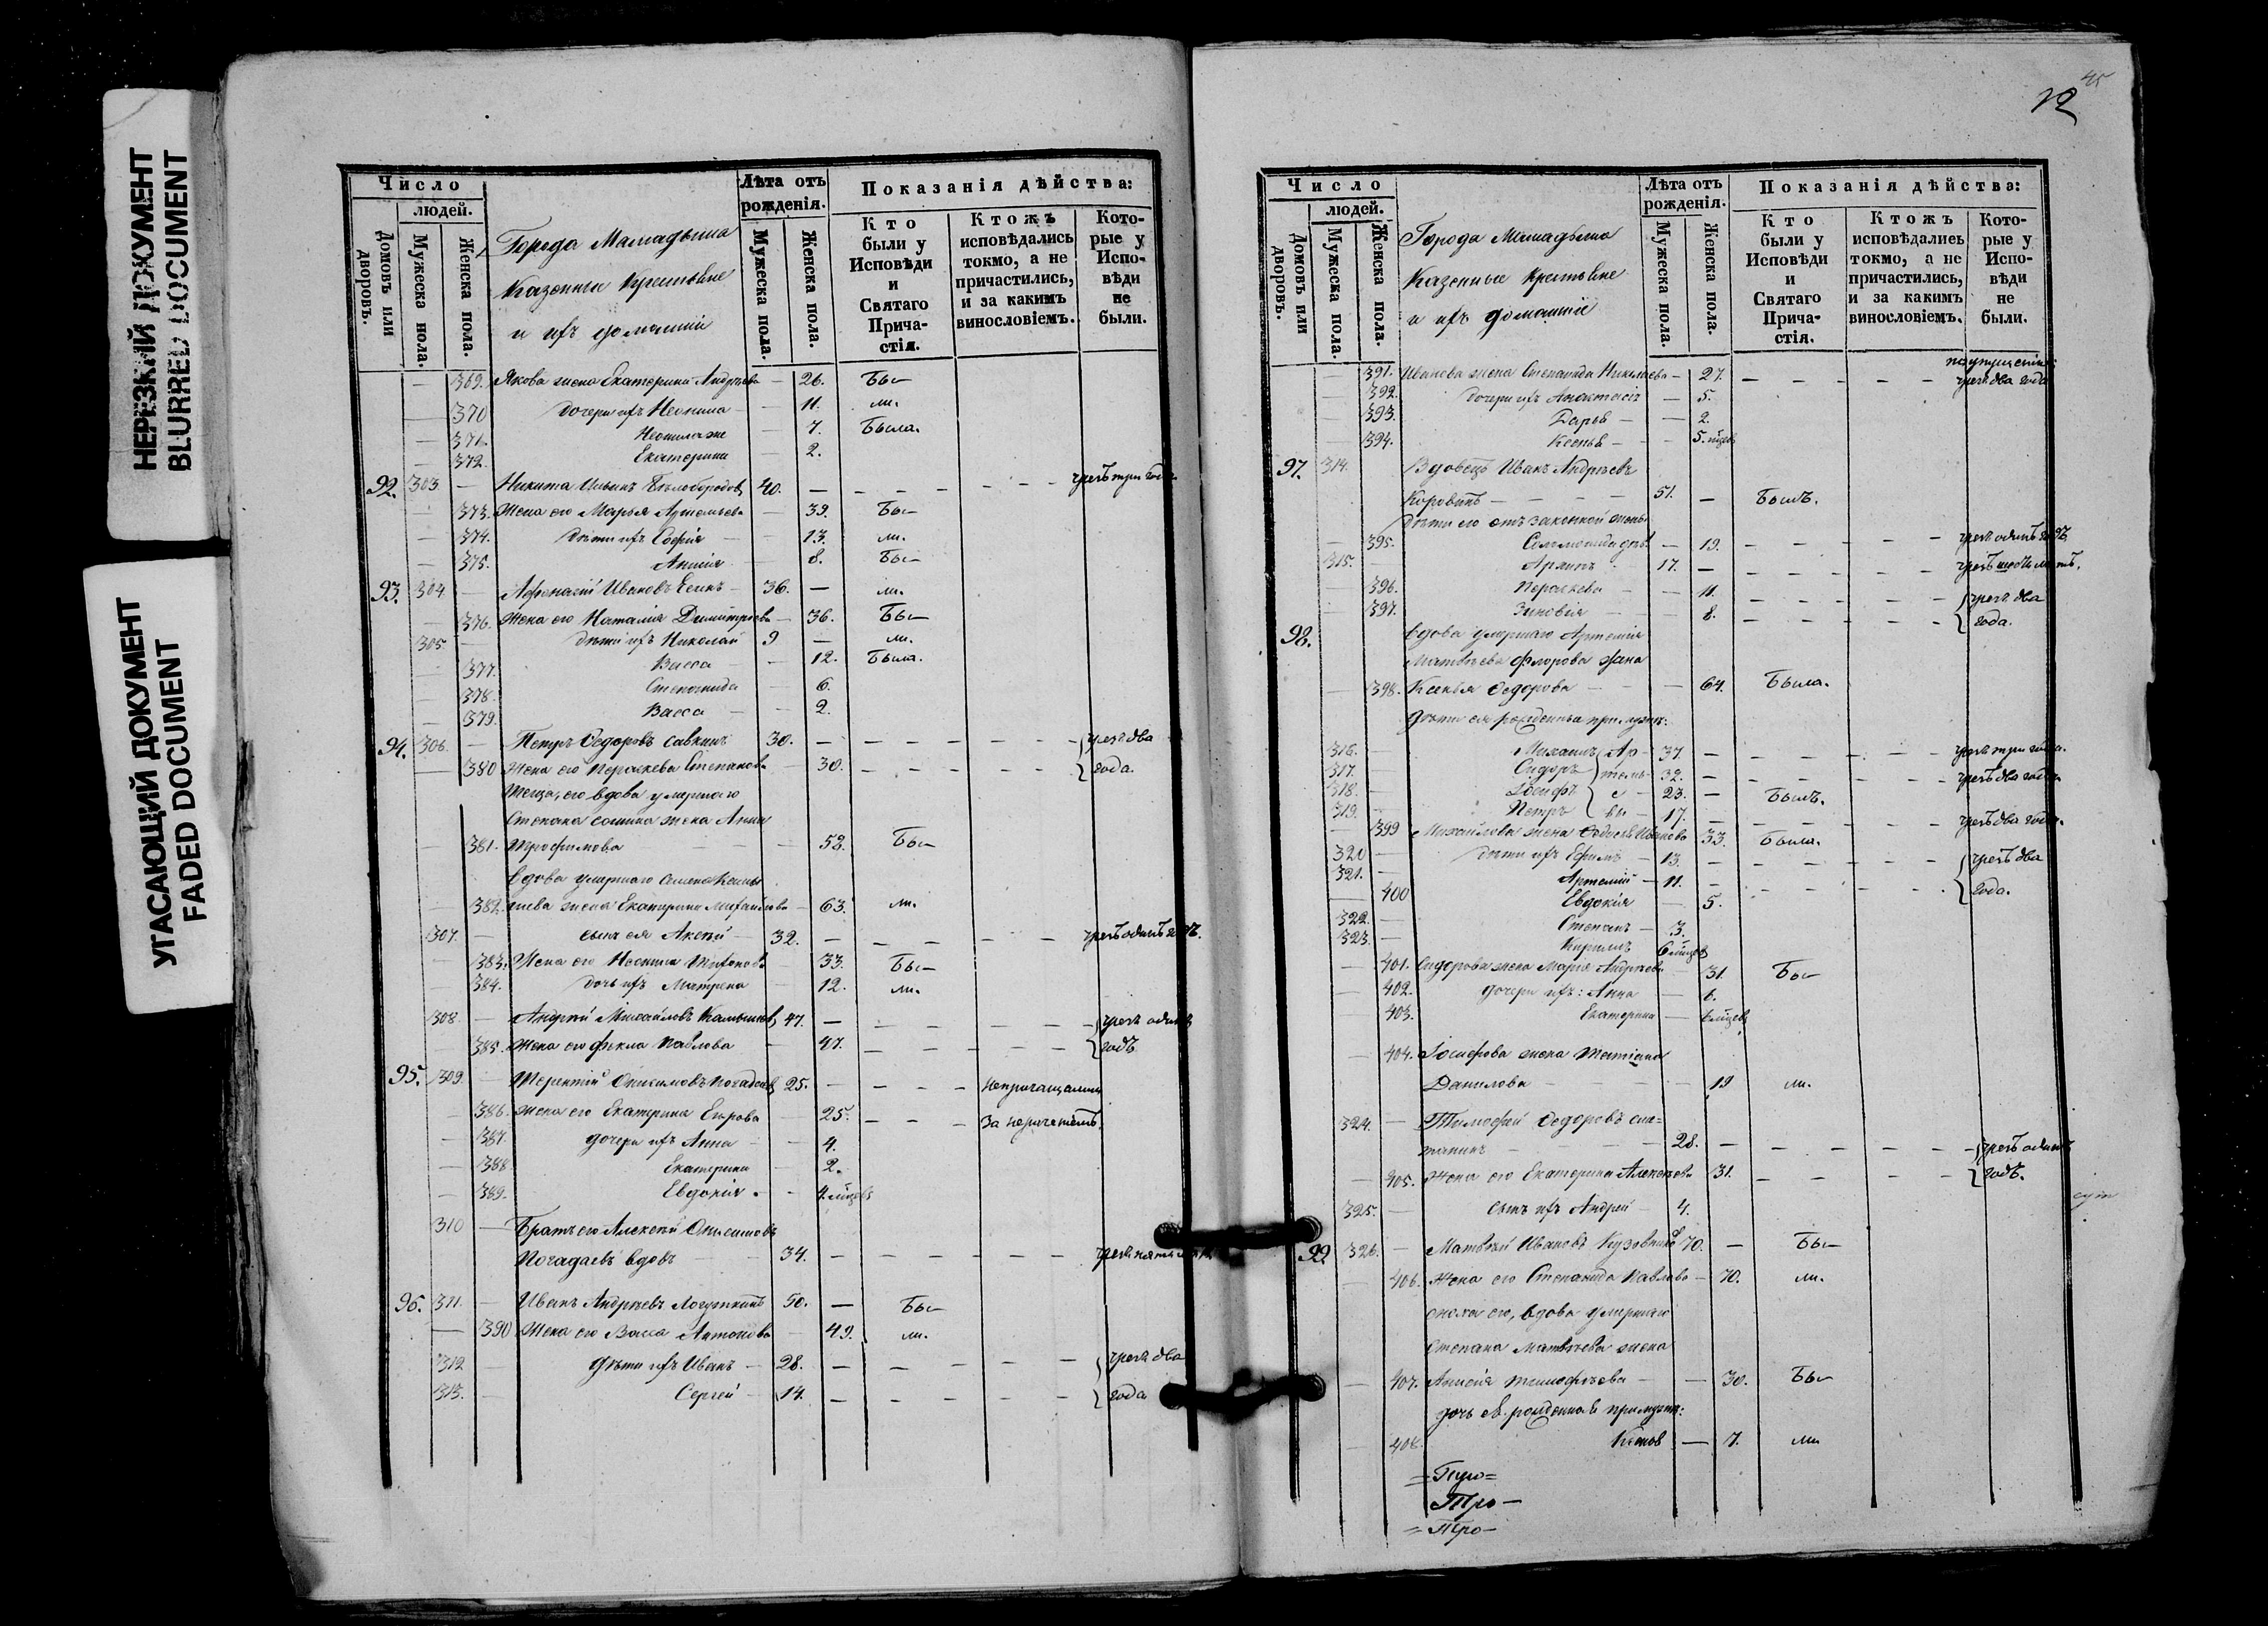 НЕРЕЗКИЙ ДОКУМЕНТ
BLURRED DOCUMENT
УГАСАЮЩИЙ ДОКУМЕНТ
FADED DOCUMENT
Число
людей.
Домовъ или дворовъ.
Мужеска пола.
Женска пола.
Города Мамадыша
Казенные Крестьяне
и ихъ домашніе
Лѣта отъ рожденія.
Мужеска пола.
Женска пола.
Показанія дѣйства:
Кто были у Исповѣди и Святаго Причастія.
Ктожъ исповѣдались токмо, а не причастились, и за какимъ винословіемъ.
Которые у Исповѣди не были.
— 369. Якова жена Екатерина Андреева — 26. Бы—
370 дочери ихъ Неонила — 11. ли.
— 371. — 7. Была.
— 372. Екатерина — 2.
92. 303. — Никита Ильинъ Бѣлобородовъ 40. — чрезъ три года.
373. Жена его Марья Артемьева — 39. Бы—
— 374. дѣти ихъ Софія — 13. ли.
— 375. Анисія — 8. Бы—
93. 304. — Афанасій Ивановъ Есинъ — 36. — ли.
— 376. Жена его Наталія Димитріева — 36. Бы—
305. — дѣти ихъ Николай 9 — ли.
— 377. Васса — 12. Была.
— 378. Степанида — 6.
— 379. Васса — 2.
94. 306. — Петръ Ѳедоровъ Савкинъ 30. — чрезъ два
— 380 Жена его Параскева Степанова — 30. года.
Теща его вдова умершаго
Степана Сомина жена Анна
— 381. Трофимова — 52. Бы—
вдова умершаго
— 382. жена Екатерина Михайлова — 63. ли.
307. — сынъ ея Алексѣй — 32. — чрезъ одинъ годъ.
— 383. Жена его — 33. Бы—
— 384. дочь ихъ Матрена — 12. ли.
308. — Андрей Михайловъ 47. — чрезъ одинъ
— 385. Жена его Ѳекла Павлова — 47. годъ
95. 309. — Терентій Онисимовъ Почадаевъ 25. — непричащались
— 386. Жена его Екатерина Егорова — 25. за
— 387. дочери ихъ Анна — 4.
— 388 Екатерина — 2.
— 389. Евдокія — 4 мѣсѧцъ
310 — Братъ его Алексѣй Онисимовъ
Почадаевъ вдовъ — 34. — чрезъ пять лѣтъ
96. 311. — Иванъ Андреевъ Логуткинъ 50. — Бы—
— 390 Жена его Васса Антонова — 49. ли.
312 — дѣти ихъ Иванъ — 28. — чрезъ два
313. — Сергей — 14. — года
45
12
Число
людей.
Домовъ или дворовъ.
Мужеска пола.
Женска пола.
Города Мамадыша
Казенные Крестьяне
и ихъ домашніе
Лѣта отъ рожденія.
Мужеска пола.
Женска пола.
Показанія дѣйства:
Кто были у Исповѣди и Святаго Причастія.
Ктожъ исповѣдались токмо, а не причастились, и за какимъ винословіемъ.
Которые у Исповѣди не были.
— 391. Иванова жена Степанида Николаева — 27. — чрезъ два года
— 392. дочери ихъ Анастасія — 5.
— 393. Дарья — 2.
— 394. Ксенья — 5.
97. 314. Вдовецъ Иванъ Андреевъ
Коровинъ — 51. — Былъ.
дѣти его отъ законной жены
— 395. — 19. — чрезъ одинъ годъ
315. Архипъ 17. — чрезъ лѣтъ.
396. Параскева — 11. чрезъ два
397. Зиновія — 8. года.
98. Вдова умершаго Артемія
Матвѣева Флорова жена
— 398. Ксенія Ѳедорова — 64. Была.
дѣти ея рожденныя при мужѣ:
316. — Михаилъ Ар— 37. — чрезъ три года.
317. — Сидоръ темь— 32. — чрезъ два года.
318. — Іосифъ е— 23. — Былъ.
319. — Петръ вы — 17. — чрезъ два года.
— 399 Михайлова жена Ѳедосья Иванова 33. Была.
320 — дѣти ихъ Ефимъ — 13. — чрезъ два
321. — Артемій — 11. — года.
— 400 Евдокія — 5.
322. — Степанъ — 3.
323. — Кирилъ 6
— 401. Сидорова жена Марія Андреева 31 Бы—
— 402. дочери ихъ: Анна — 6.
— 403. Екатерина —
— 404. Іосифова жена Татіана
Данилова — 19 ли.
324. — Тимофей Ѳедоровъ
28. — чрезъ одинъ
— 405. Жена его Екатерина Алексѣева 31. годъ.
325. — сынъ ихъ Андрей — 4.
99. 326. — Матвѣй Ивановъ Кузовниковъ 70. — Бы—
— 406. Жена его Степанида Павлова — 70. ли.
сноха его, вдова умершаго
Степана Матвѣева жена
— 407. Анисія Тимофѣева — 30. Бы—
дочь ея рожденная при мужѣ:
— 408. Ксенья — 7. ли